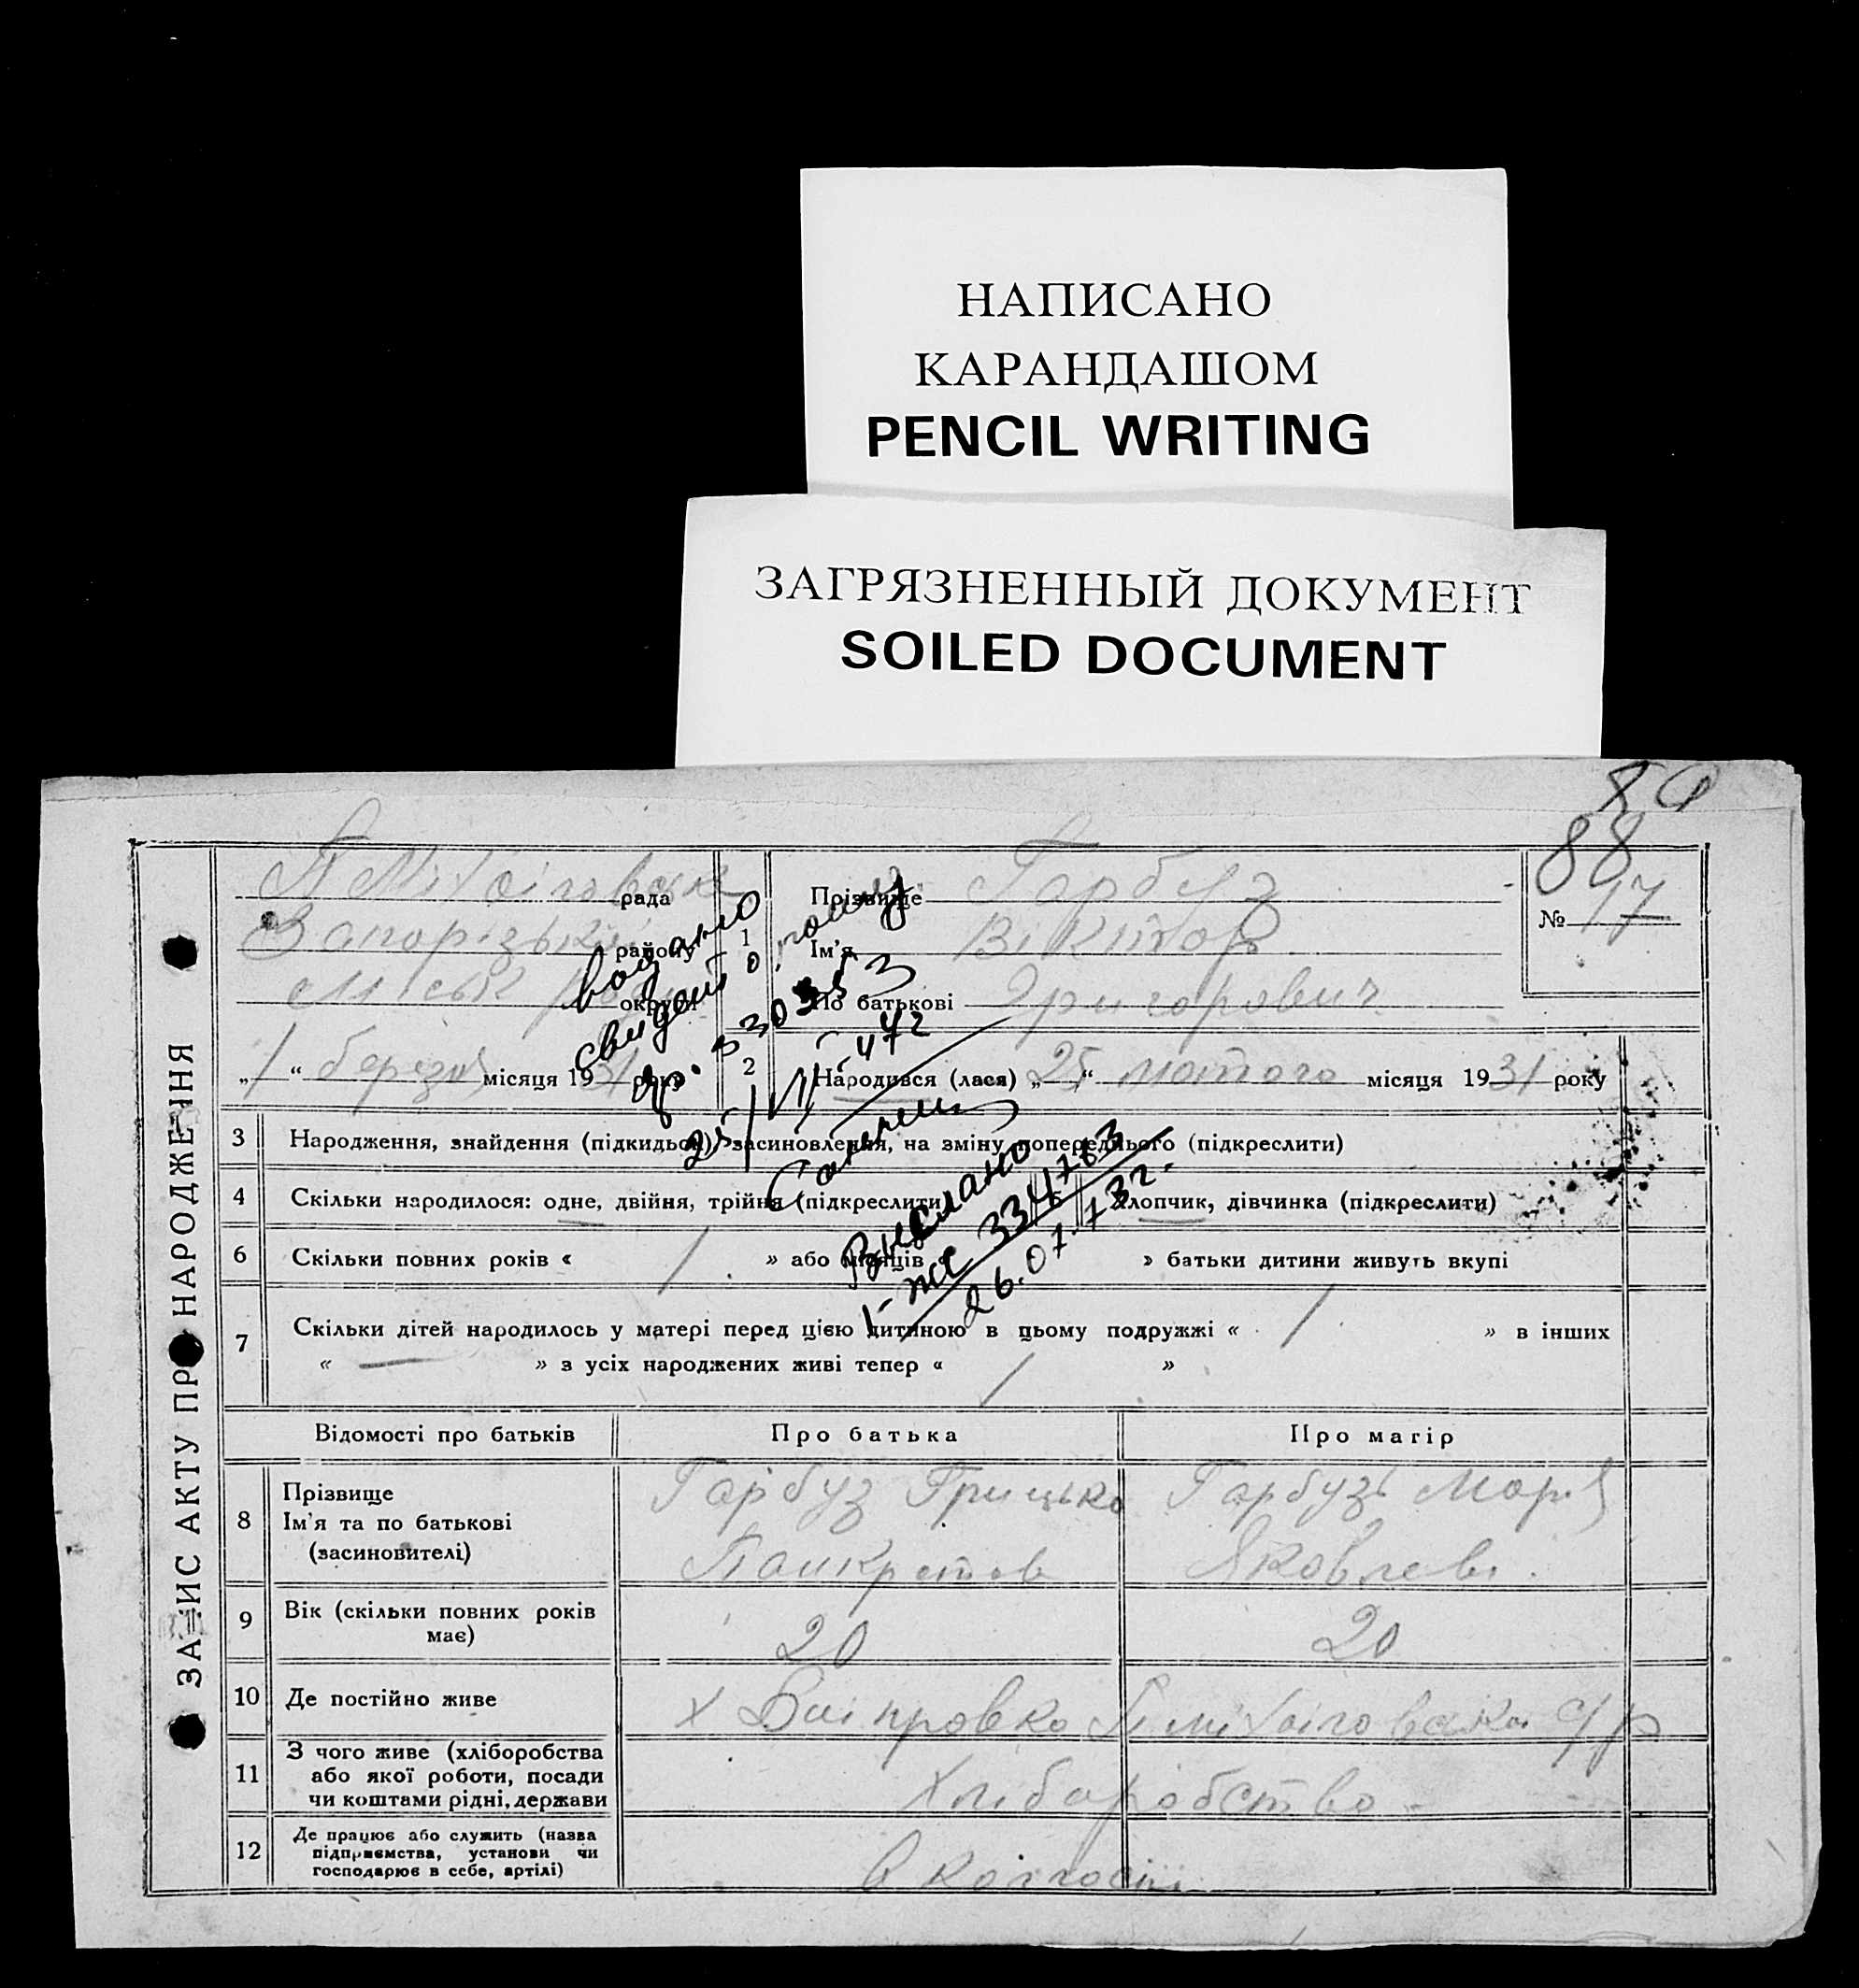 НАПИСАНО
КАРАНДАШОМ
PENCIL WRITING
ЗАГРЯЗНЕННЫЙ ДОКУМЕНТ
SOILED DOCUMENT
88
ЗАПИС АКТУ ПРО НАРОДЖЕННЯ
рада
Запорізький району
округи
„1“ березня місяця 1931 року
№ 17
1
Прізвище Гарбуз
Ім'я Віктор
По батькові Григорович
2
Народився (лася) „25“ лютого місяця 1931 року
3 Народження, знайдення (підкидьок), засиновлення, на зміну попереднього (підкреслити)
4 Скільки народилося: одне, двійня, трійня (підкреслити) 5 Хлопчик, дівчинка (підкреслити)
6 Скільки повних років « / » або місяців « » батьки дитини живуть вкупі
7 Скільки дітей народилось у матері перед цією дитиною в цьому подружжі « / » в інших
« — » з усіх народжених живі тепер « / »
Відомості про батьків Про батька Про матір
8 Прізвище
Ім'я та по батькові
(засиновителі)
Гарбуз Грицько
Панкратов
Гарбузь Марія
Яковлев.
9 Вік (скільки повних років має)
20 20
10 Де постійно живе
х Дніпровка с/р
11 З чого живе (хліборобства
або якої роботи, посади
чи коштами рідні, держави
Хліборобство
12 Де працює або служить (назва
підприємства, установи чи
господарює в себе, артілі)
в колгоспі
выслано
26.07.73г.